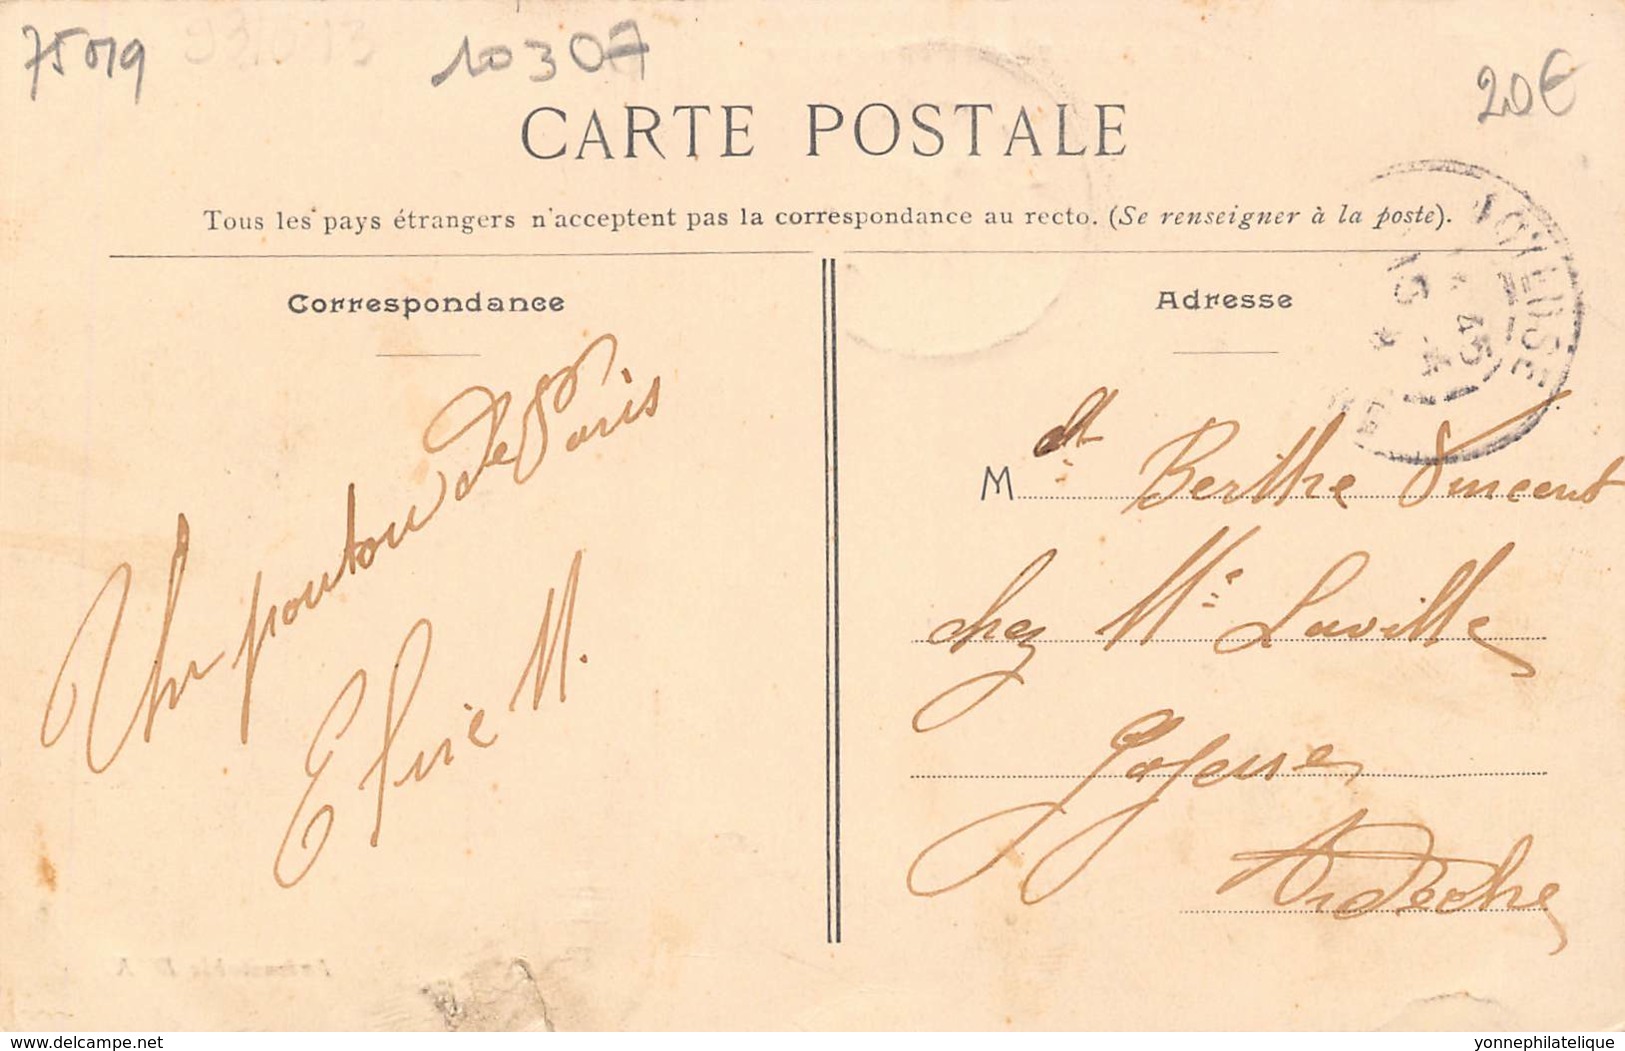 75019
93013
10307
20€
CARTE POSTALE
Tous les pays étrangers n'acceptent pas la correspondance au recto. (Se renseigner à la poste).
Correspondance
Adresse
JOYEUSE
15
45
Un poutou de Paris
Elise M.
M
Berthe Vincent
chez Me Laville
Joyeuse
Ardèche
www.delcampe.net
yonnephilatelique